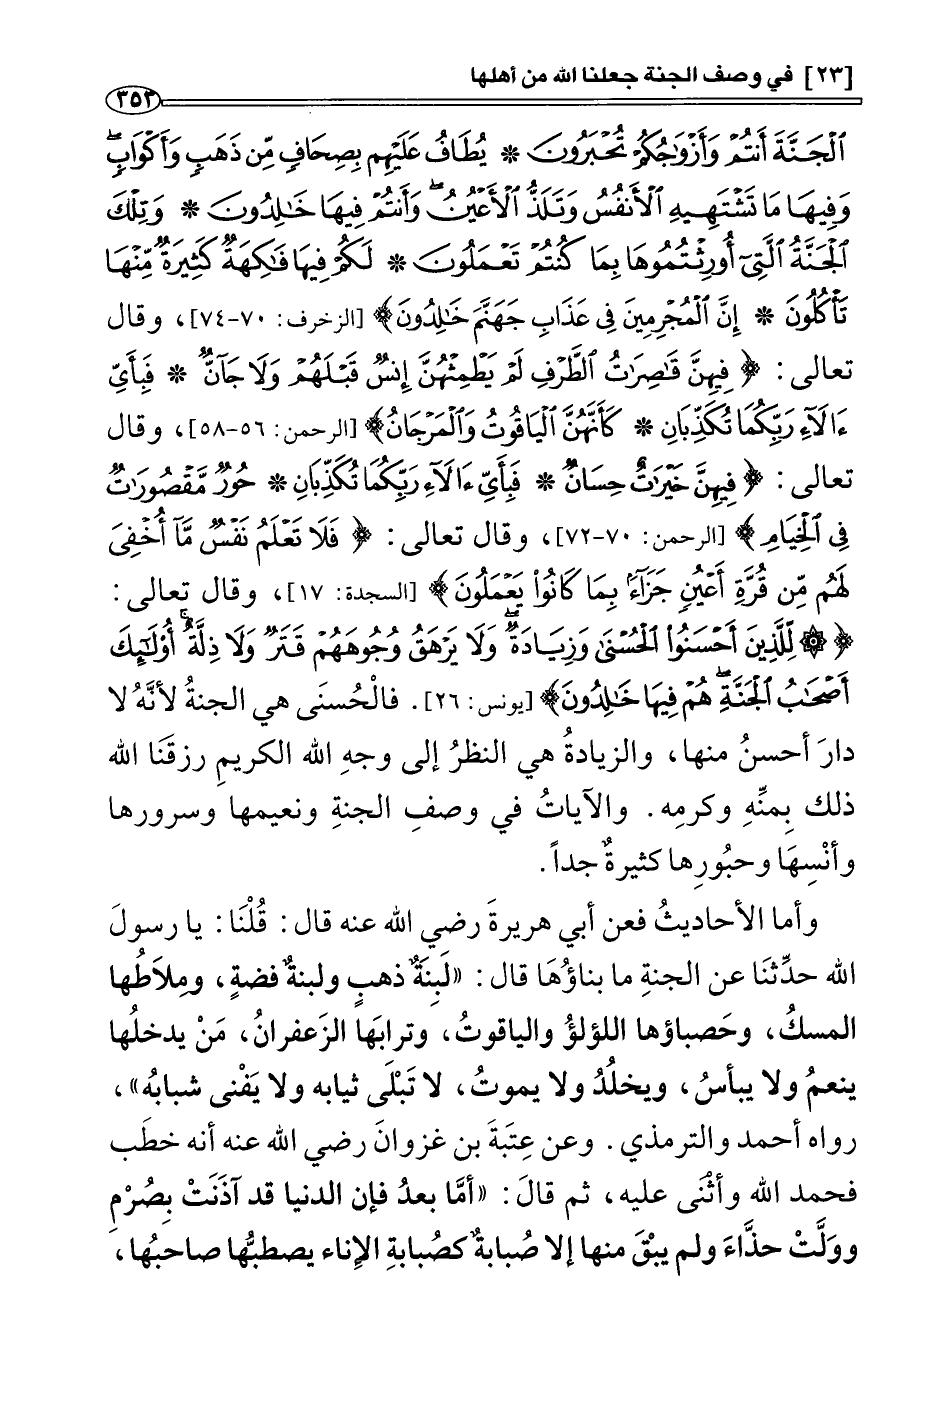 [٢٣] في وصف الجنة جعلنا الله من أهلها
٣٥٣
ٱلْجَنَّةَ أَنتُمْ وَأَزْوَٰجُكُمْ تُحْبَرُونَ * يُطَافُ عَلَيْهِم بِصِحَافٍ مِّن ذَهَبٍ وَأَكْوَابٍ ۖ
وَفِيهَا مَا تَشْتَهِيهِ ٱلْأَنفُسُ وَتَلَذُّ ٱلْأَعْيُنُ ۖ وَأَنتُمْ فِيهَا خَٰلِدُونَ * وَتِلْكَ
ٱلْجَنَّةُ ٱلَّتِىٓ أُورِثْتُمُوهَا بِمَا كُنتُمْ تَعْمَلُونَ * لَكُمْ فِيهَا فَٰكِهَةٌ كَثِيرَةٌ مِّنْهَا
تَأْكُلُونَ * إِنَّ ٱلْمُجْرِمِينَ فِى عَذَابِ جَهَنَّمَ خَٰلِدُونَ﴾ [الزخرف: ٧٠-٧٤]، وقال
تعالى: ﴿ فِيهِنَّ قَٰصِرَٰتُ ٱلطَّرْفِ لَمْ يَطْمِثْهُنَّ إِنسٌ قَبْلَهُمْ وَلَا جَآنٌّ * فَبِأَىِّ
ءَالَآءِ رَبِّكُمَا تُكَذِّبَانِ * كَأَنَّهُنَّ ٱلْيَاقُوتُ وَٱلْمَرْجَانُ﴾ [الرحمن: ٥٦-٥٨]، وقال
تعالى: ﴿ فِيهِنَّ خَيْرَٰتٌ حِسَانٌ * فَبِأَىِّ ءَالَآءِ رَبِّكُمَا تُكَذِّبَانِ * حُورٌ مَّقْصُورَٰتٌ
فِى ٱلْخِيَامِ ﴾ [الرحمن: ٧٠-٧٢]، وقال تعالى: ﴿ فَلَا تَعْلَمُ نَفْسٌ مَّآ أُخْفِىَ
لَهُم مِّن قُرَّةِ أَعْيُنٍ جَزَآءًۢ بِمَا كَانُوا۟ يَعْمَلُونَ ﴾ [السجدة: ١٧]، وقال تعالى:
﴿ ۞ لِّلَّذِينَ أَحْسَنُوا۟ ٱلْحُسْنَىٰ وَزِيَادَةٌ ۖ وَلَا يَرْهَقُ وُجُوهَهُمْ قَتَرٌ وَلَا ذِلَّةٌ ۚ أُو۟لَٰٓئِكَ
أَصْحَٰبُ ٱلْجَنَّةِ ۖ هُمْ فِيهَا خَٰلِدُونَ﴾ [يونس: ٢٦]. فالْحُسنَى هي الجنةُ لأنَّهُ لا
دارَ أحسنُ منها، والزيادةُ هي النظرُ إلى وجهِ الله الكريمِ رزقَنَا الله
ذلك بِمنِّهِ وكرمِه. والآياتُ في وصفِ الجنةِ ونعيمها وسرورها
وأنْسِهَا وحبُورِها كثيرةٌ جداً.
وأما الأحاديثُ فعن أبي هريرةَ رضي الله عنه قال: قُلْنَا: يا رسولَ
الله حدِّثنَا عن الجنةِ ما بناؤُهَا قال: «لَبِنَةٌ ذهبٍ ولبنةٌ فضةٍ، ومِلاَطُها
المسكُ، وحَصباؤها اللؤلؤُ والياقوتُ، وترابَها الزَعفرانُ، مَنْ يدخلُها
ينعمُ ولا يبأسُ، ويخلُدُ ولا يموتُ، لا تَبْلَى ثيابه ولا يَفْنى شبابُه»،
رواه أحمد والترمذي. وعن عِتبَةَ بن غزوانَ رضي الله عنه أنه خطَب
فحمد الله وأثْنَى عليه، ثم قالَ: «أمَّا بعدُ فإن الدنيا قد آذَنَتْ بِصُرْمٍ
وولَّتْ حذَّاءَ ولم يبْقَ منها إلا صُبابةٌ كصُبابةِ الإِناء يصطبُّها صاحبُها،